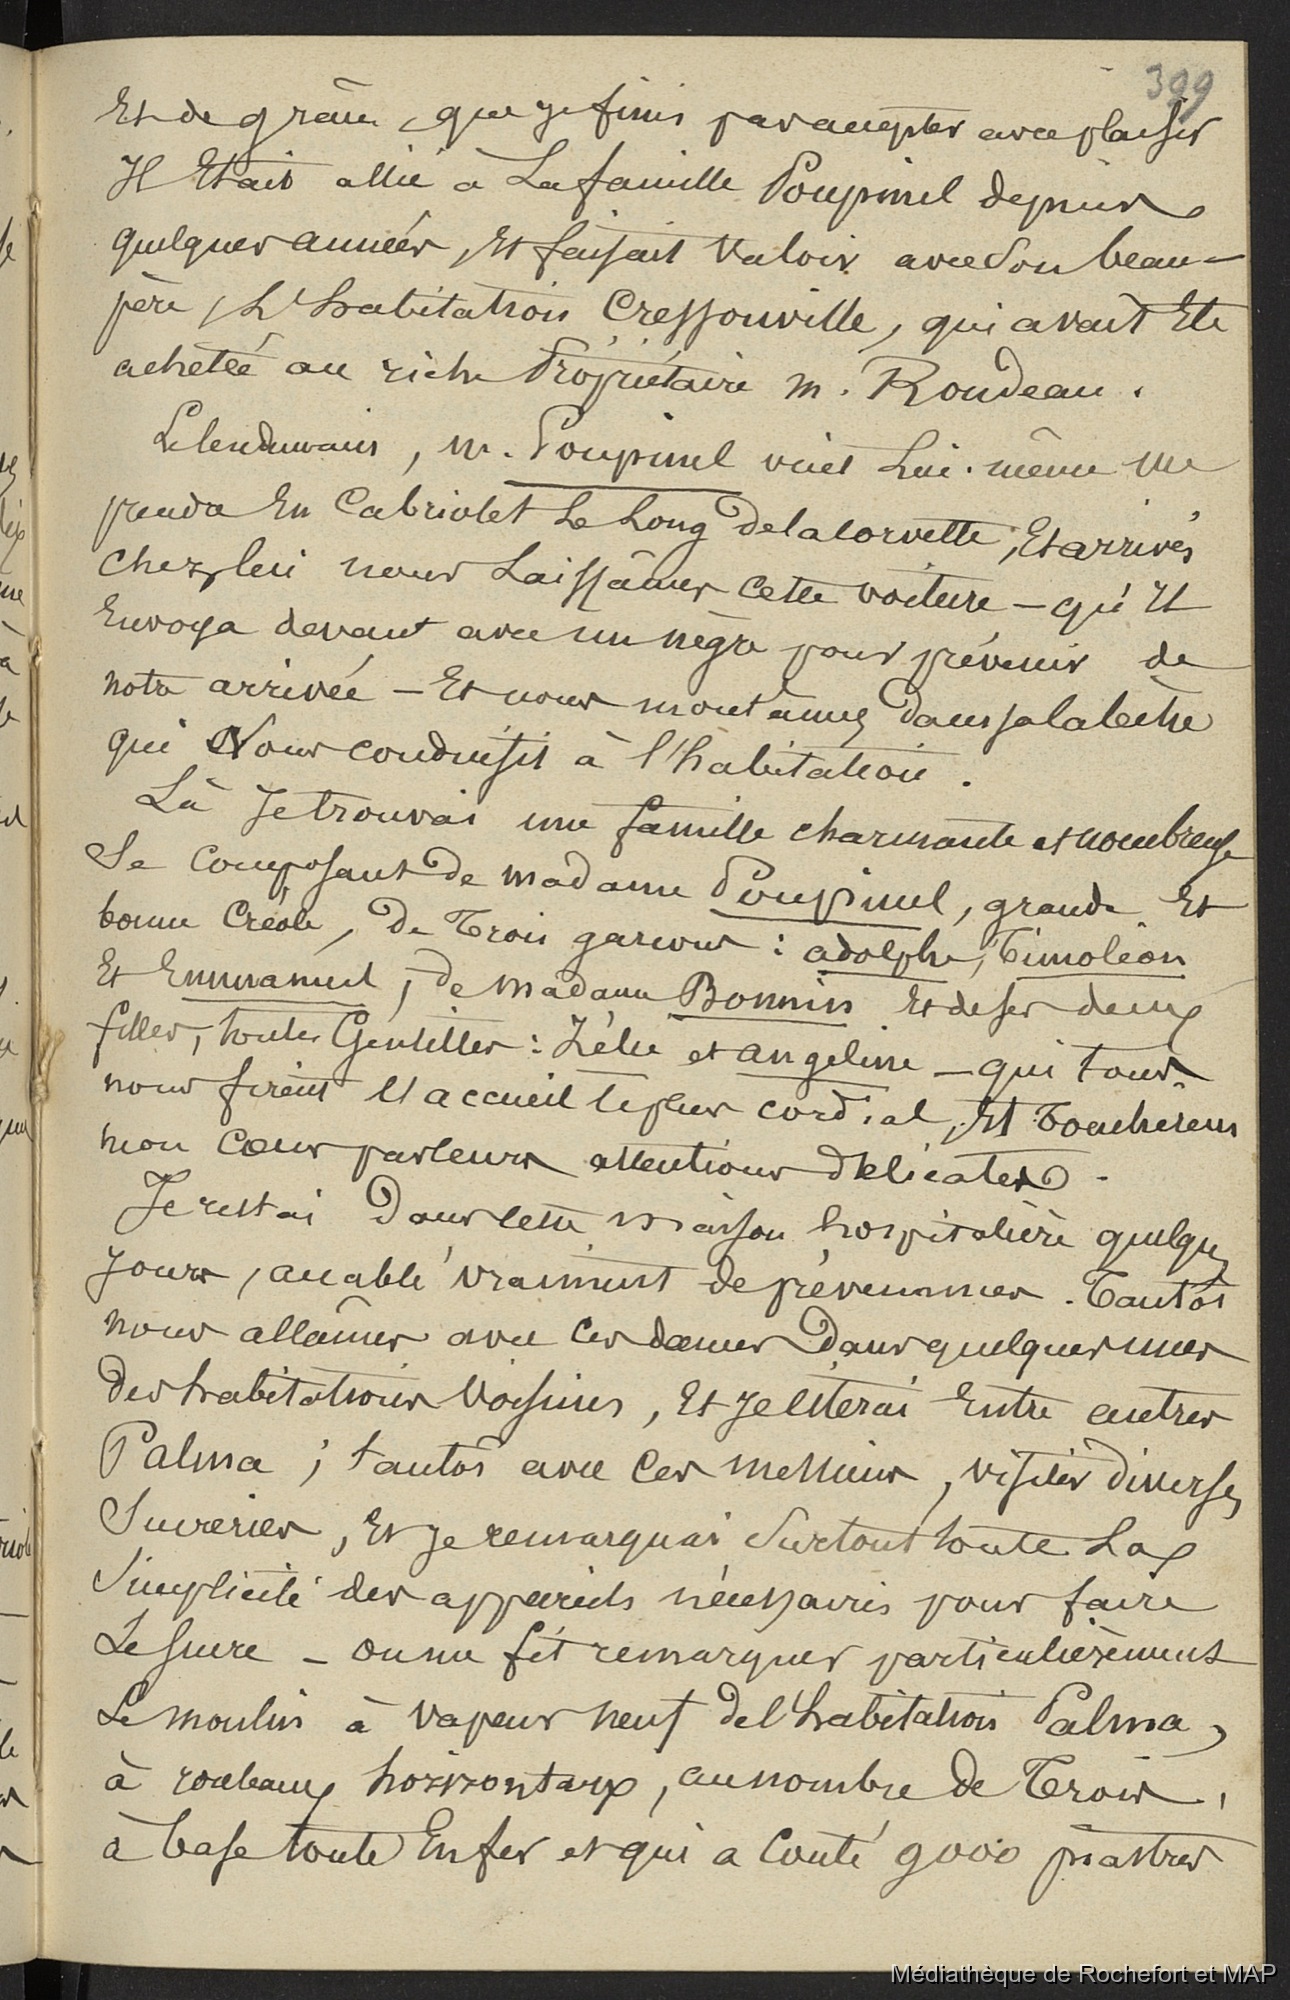 399
Et de grâce, que je finis par accepter avec plaisir
Il Etait allié à La famille Poupinel depuis
quelques années, Et faisait Valoir avec Son beau-
père, L'habitation Cressonville, qui avait Eté
achetée au riche Propriétaire M. Rondeau.
Le lendemain, M. Poupinel vint Lui-même me
prendre En Cabriolet Le Long de la corvette, Et arrivés
chez lui nous Laissâmes cette voiture - qu'Il
Envoya devant avec un nègre pour prévenir de
notre arrivée - Et nous montâmes dans sa calèche
qui Nous conduisit à l'habitation.
Là Je trouvai une famille charmante et nombreuse
Se Composant de Madame Poupinel, grande Et
bonne Créole, De Trois garcons : adolphe, Timoléon
Et Emmanuel, de Madame Bonnin Et de ses deux
filles, toutes Gentilles : Zélie et angeline - qui tous
nous firent l'accueil le plus cordial, Et Toucherent
mon Cœur par leurs attentions Délicates.
Je restai Dans cette Maison hospitalière quelques
Jours, accablé vraiment de prévenances. Tantôt
nous allâmes avec Ces dames Dans quelques unes
des habitations Voisines, Et Je citerai Entre autres
Palma ; tantôt avec Ces Messieurs, visiter diverses
Sucreries, Et Je remarquai Surtout toute La
Simplicité des appareils nécessaires pour faire
Le Sucre - on me fit remarquer particulièrement
Le Moulin à Vapeur neuf de l'habitation Palma,
à rouleaux horizontaux, au nombre de Trois,
à base toute En fer et qui a Couté 9000 piastres
Médiathèque de Rochefort et MAP